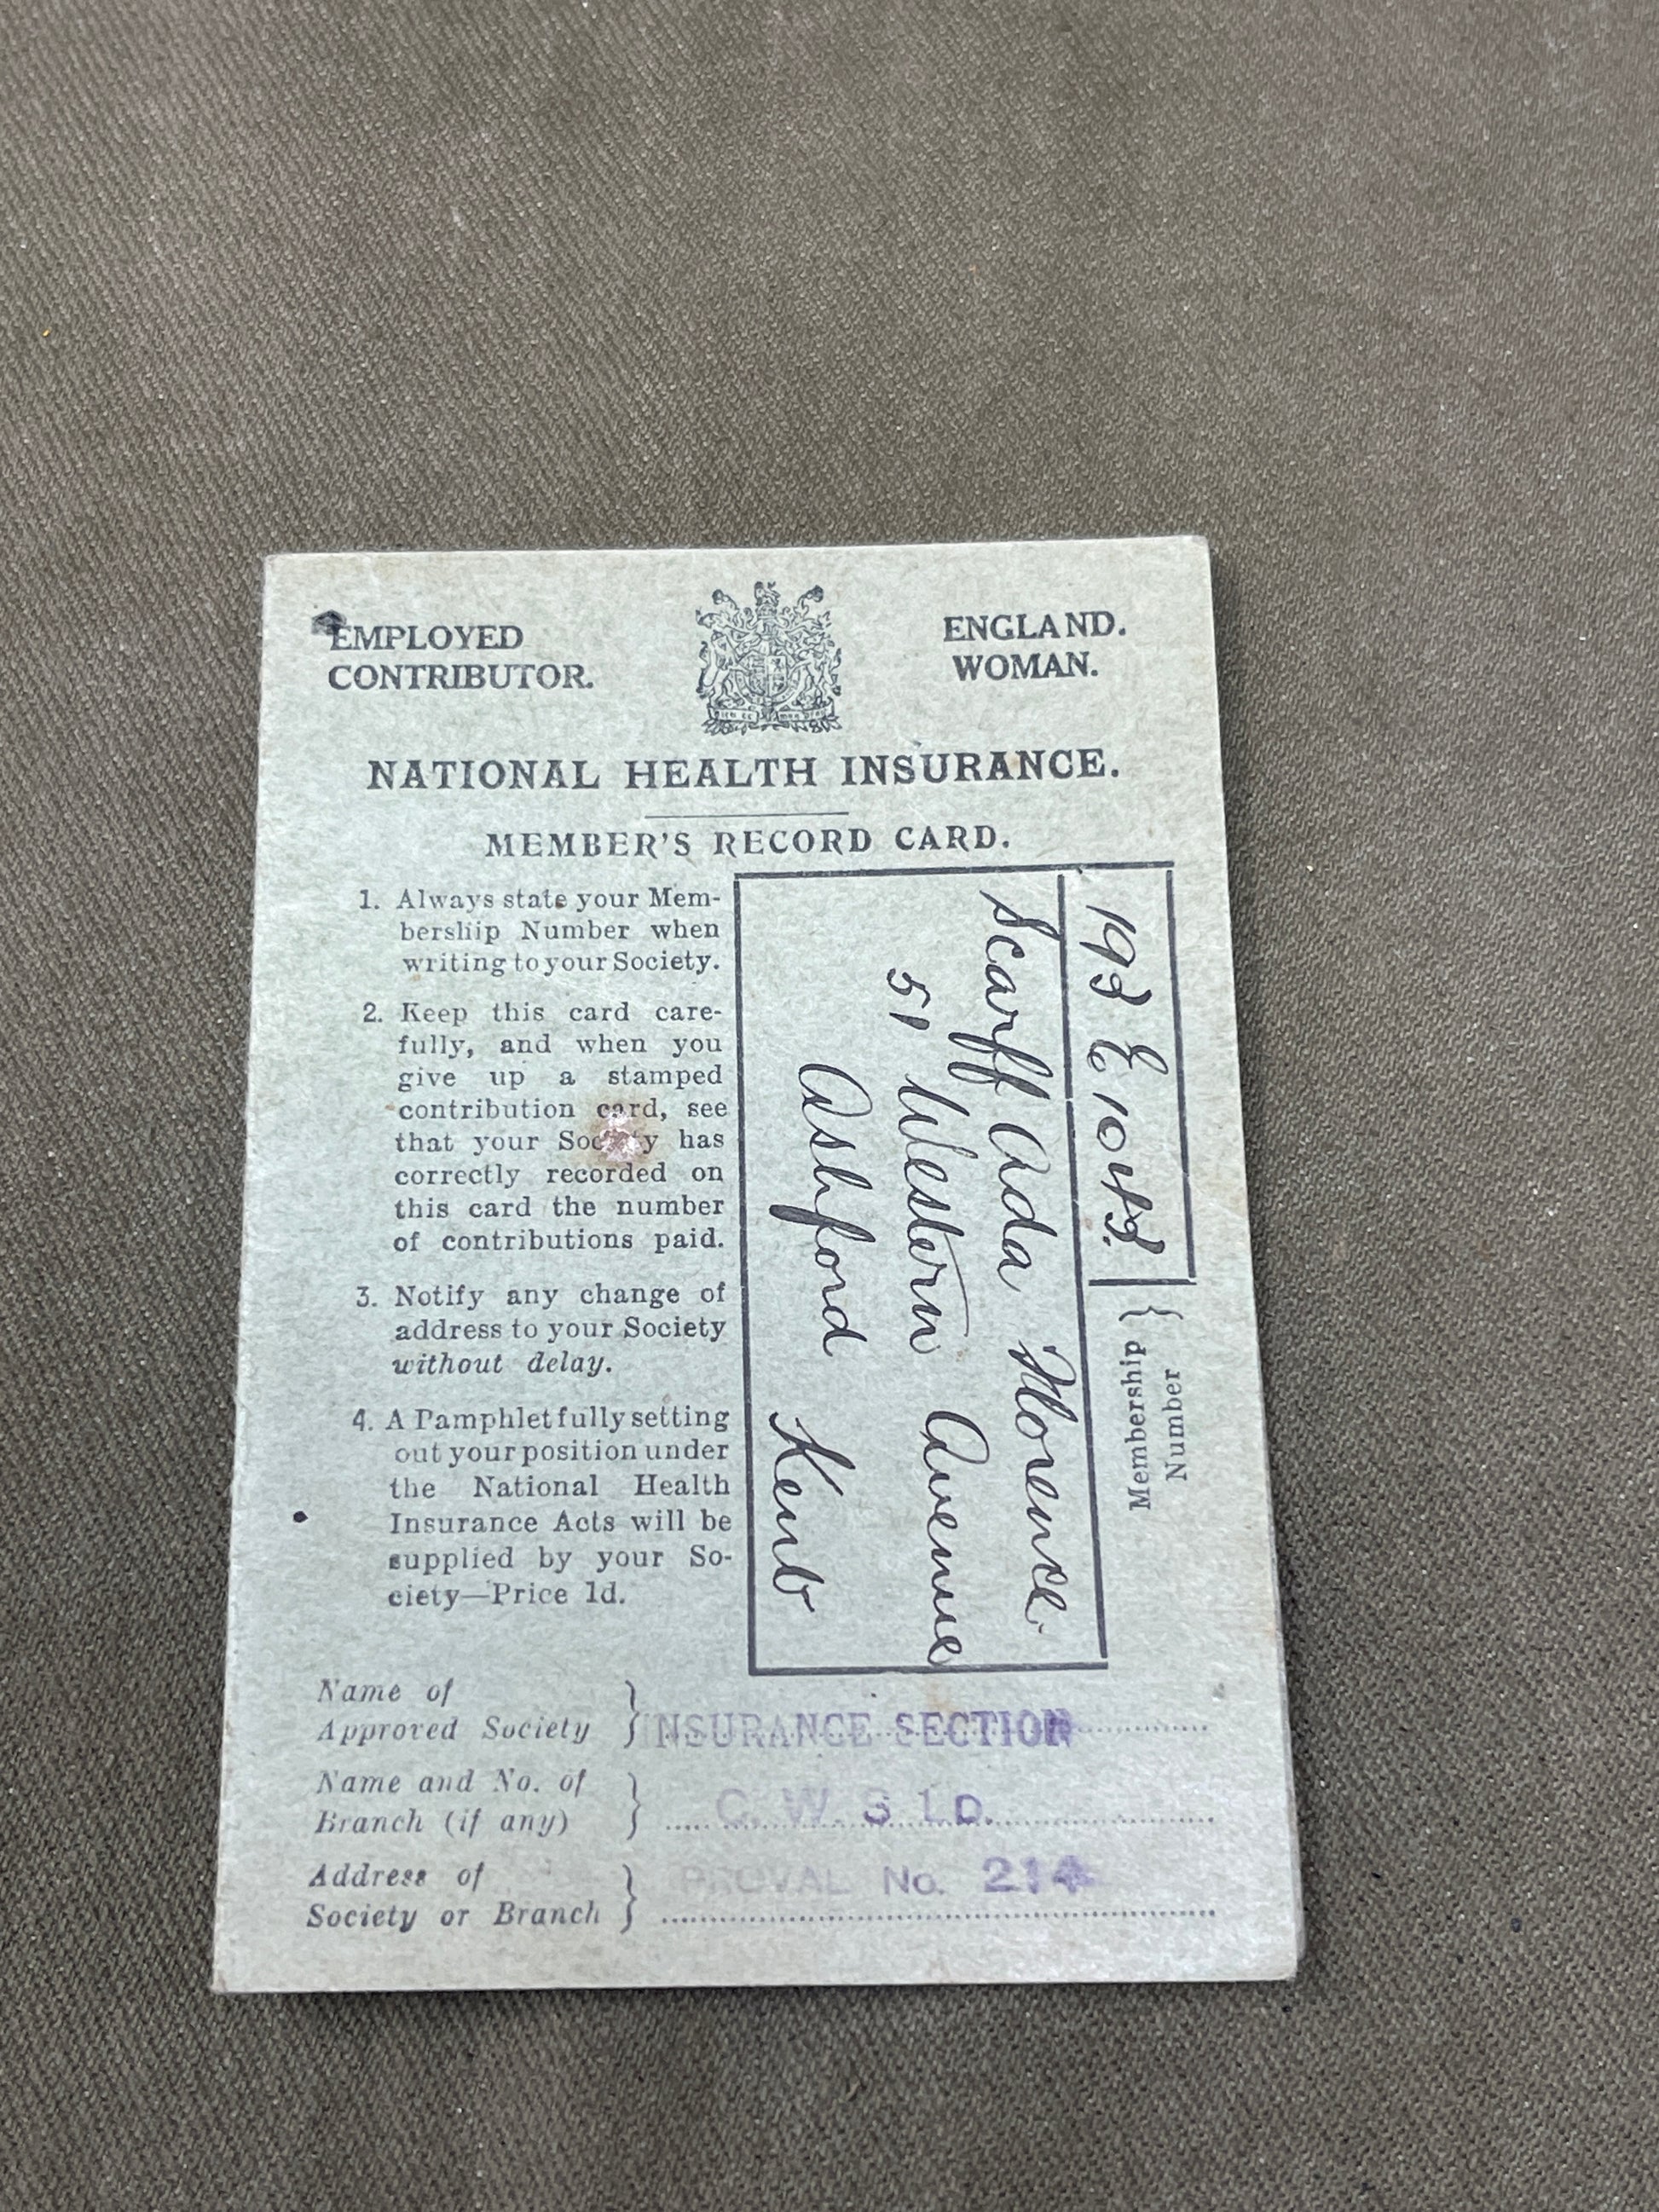 EMPLOYED
CONTRIBUTOR.
ENGLAND.
WOMAN.
NATIONAL HEALTH INSURANCE.
MEMBER'S RECORD CARD.
1. Always state your Mem-
bership Number when
writing to your Society.
2. Keep this card care-
fully, and when you
give up a stamped
contribution card, see
that your Society has
correctly recorded on
this card the number
of contributions paid.
3. Notify any change of
address to your Society
without delay.
4. A Pamphlet fully setting
out your position under
the National Health
Insurance Acts will be
supplied by your So-
ciety—Price 1d.
Membership
Number
Scarff Ada Florence.
51 Western Avenue
Ashford Kent
Name of
Approved Society
INSURANCE SECTION
Name and No. of
Branch (if any)
C. W. S
Address of
Society or Branch
PROVAL No. 214